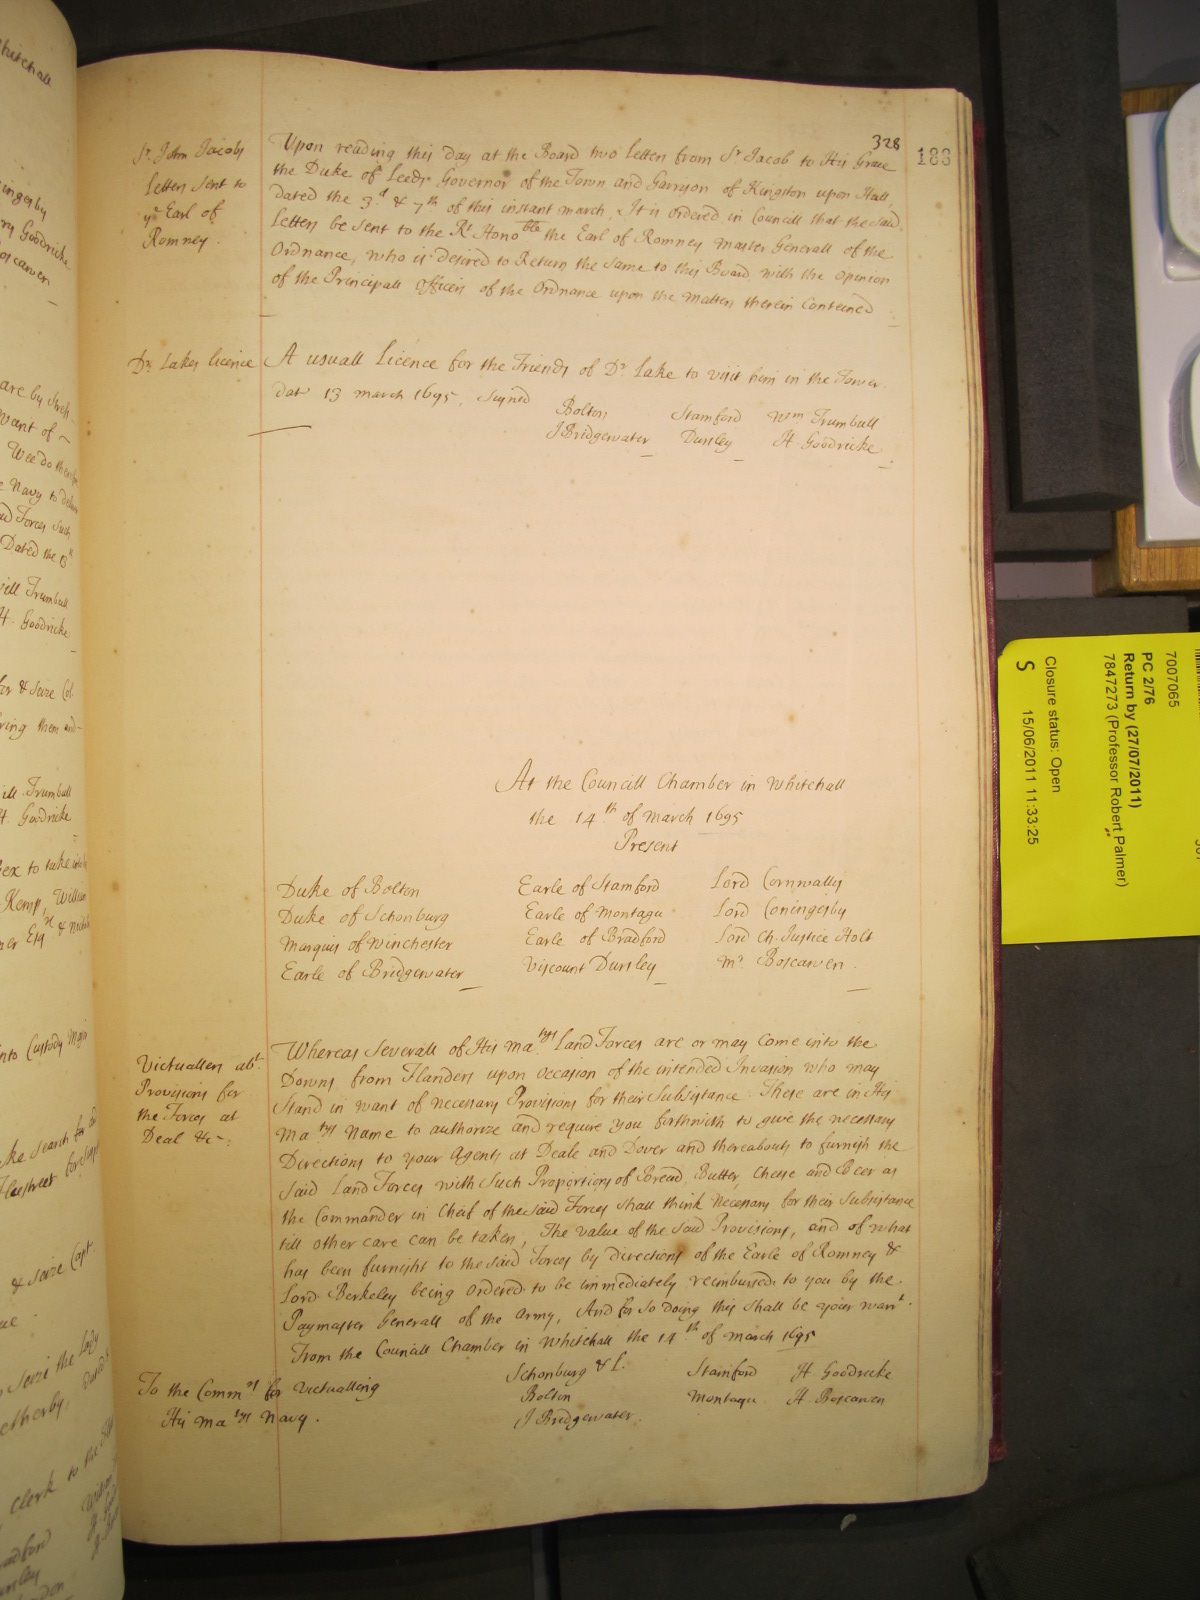 328
188
Sr. John Jacobs
Letters sent to
ye Earl of
Romney.
Upon reading this day at the Board two Letters from Sr Jacob to His Grace
the Duke of Leeds Governor of the Town and Garrison of Kingston upon Hull,
dated the 3d & 7th of this instant march, It is ordered in Councill that the said
Letters be sent to the Rt Honoble the Earl of Romney master Generall of the
Ordnance, who is desired to Return the same to this Board with the opinion
of the Principall Officers of the Ordnance upon the matters therein Contained
Drs Lakes licence
A usuall Licence for the Friends of Dr Lake to visit him in the Tower
dat 13 march 1695. Signed
Bolton Stamford Wm Trumbull
J Bridgewater Dursley H. Goodricke
At the Councill Chamber in Whitehall
the 14th of march 1695
Present
Duke of Bolton Earle of Stamford Lord Cornwallis
Duke of Schonburg Earle of Montagu Lord Coningesby
Marquis of Winchester Earle of Bradford Lord Ch. Justice Holt
Earle of Bridgewater Viscount Dursley Mr Boscawen
Victuallers abt
Provisions for
the Forces at
Deal &c
Whereas Severall of His Matys Land Forces are or may come into the
Downs from Flanders upon occasion of the intended Invasion who may
Stand in want of necessary Provisions for their Subsistance These are in His
Matys Name to authorize and require you forthwith to give the necessary
Directions to your Agents at Deale and Dover and thereabouts to furnish the
said Land Forces with Such Proportions of Bread, Butter, Cheese and Beer as
the Commander in Cheif of the said Forces shall think Necessary for their Subsistance
till other care can be taken, The value of the said Provisions, and of what
has been furnisht to the said Forces by Directions of the Earle of Romney &
Lord Berkeley being ordered to be immediately reimbursed to you by the
Paymaster Generall of the Army, And for so doing this shall be your warrt.
From the Councill Chamber in Whitehall the 14th of march 1695
Schonburg & L. Stamford H. Goodricke
Bolton Montagu H. Boscawen
J. Bridgewater
To the Commrs for Victualling
His Matys Navy.
7007065
PC 2/76
Return by (27/07/2011)
7847273 (Professor Robert Palmer)
Closure status: Open
S 15/06/2011 11:33:25